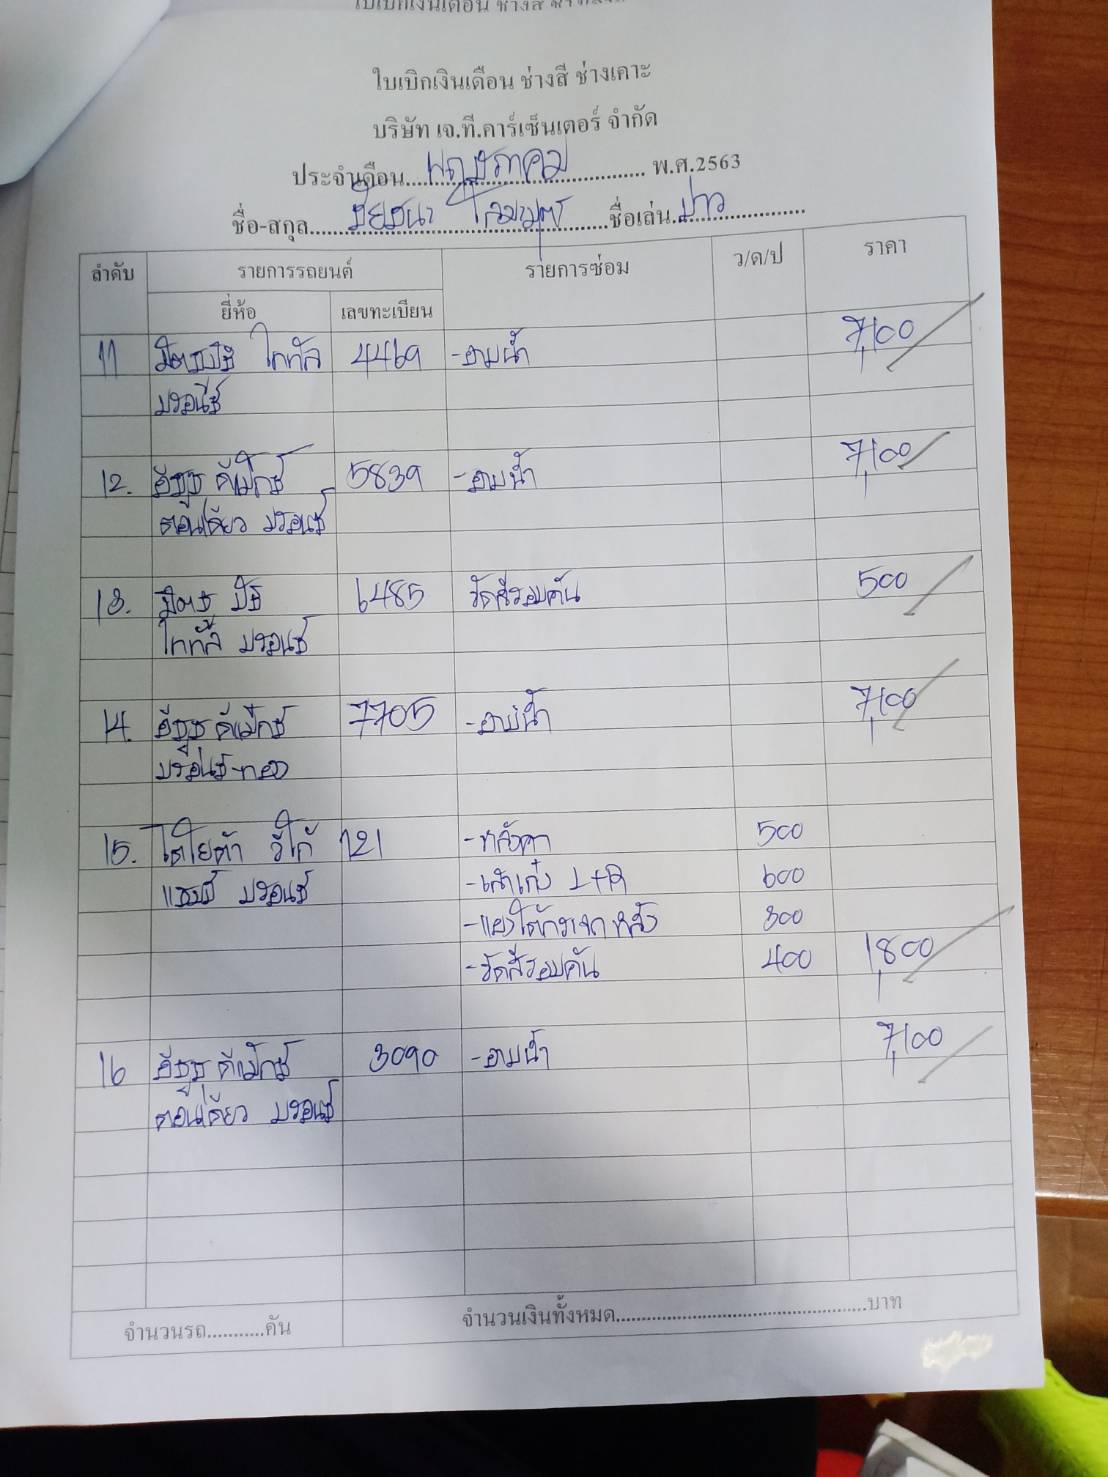 ใบเบิกเงินเดือน ช่างสี ช่างเคาะ
บริษัท เจ.ที.คาร์เซ็นเตอร์ จำกัด
ประจำเดือน....พฤษภาคม.... พ.ศ.2563
ชื่อ-สกุล.... ....ชื่อเล่น.ข่าว....
ลำดับ รายการรถยนต์ รายการซ่อม ว/ด/ป ราคา
ยี่ห้อ เลขทะเบียน
11 ไททัล 4469 -อาบน้ำ 7,100
บรอนซ์
12. อีซูซุ ดีแม็กซ์ 5839 -อาบน้ำ 7,100
ตอนเดียว บรอนซ์
13. มิตซู บิชิ 6485 รัดสีรอบคัน 500
ไททัล บรอนซ์
14. อีซูซุ ดีแม็กซ์ 7705 -อาบน้ำ 7,100
บรอนซ์-ทอง
15. โตโยต้า วีโก้ 121 -หลังคา 500
แชมป์ บรอนซ์ -เสาเก๋ง L+R 600
-แผงใต้กระจกหลัง 300
-รัดสีรอบคัน 400 1,800
16 อีซูซุ ดีแม็กซ์ 3090 -อาบน้ำ 7,100
ตอนเดียว บรอนซ์
จำนวนรถ...........คัน จำนวนเงินทั้งหมด......................................................บาท